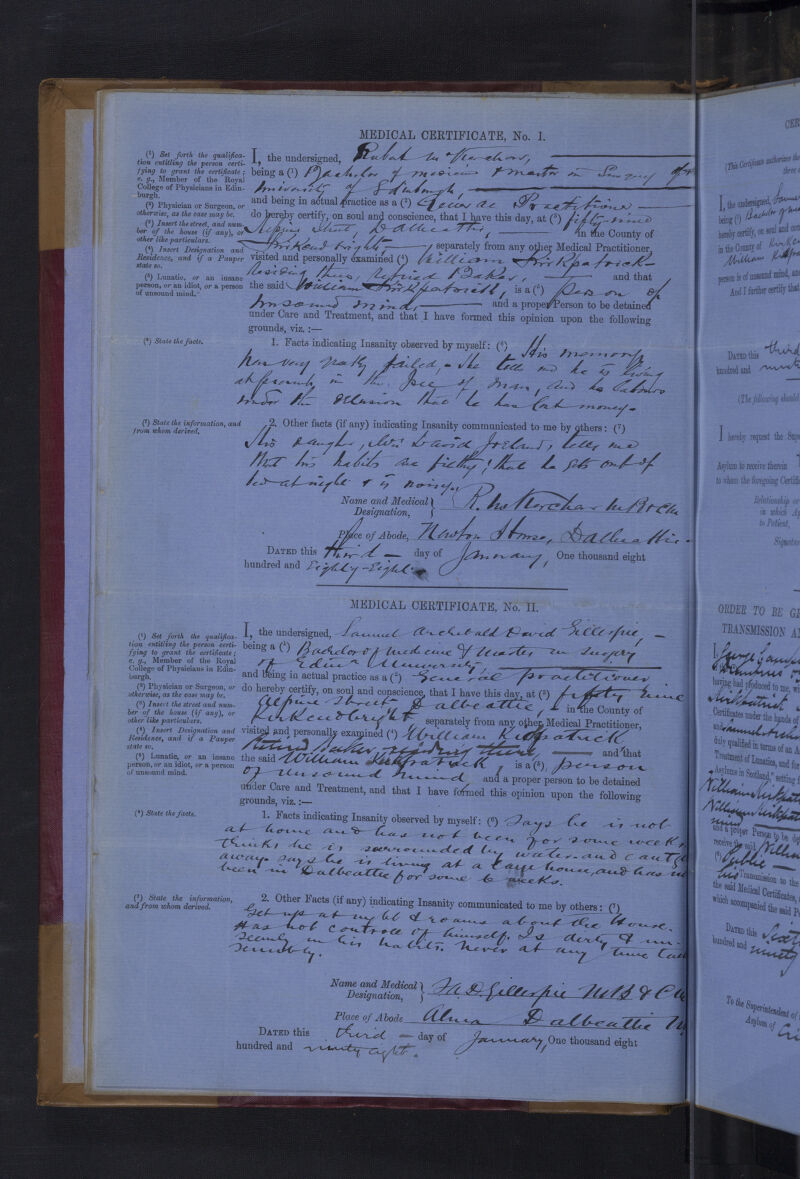 MEDICAL CERTIFICATE, No. I.
(¹) Set forth the qualifica-
tion entitling the person certi-
fying to grant the certificate;
e. g., Member of the Royal
College of Physicians in Edin-
burgh.
(²) Physician or Surgeon, or
otherwise, as the case may be.
(³) Insert the street, and num-
ber of the house (if any), or
other like particulars.
(⁴) Insert Designation and
Residence, and if a Pauper
state so.
(⁵) Lunatic, or an insane
person, or an idiot, or a person
of unsound mind.
I, the undersigned,
being a (¹) Bachelor of medicine & master in Surgery of the
University of Edinburgh,
and being in actual practice as a (²) General Practitioner
do hereby certify, on soul and conscience, that I have this day, at (³) fifty nine
Street, Dalbeattie, in the County of
Kirkcudbright, separately from any other Medical Practitioner,
visited and personally examined (⁴) William Kirkpatrick
residing there, retired Baker, and that
the said William Kirkpatrick, is a (⁵) person of
unsound mind, and a proper Person to be detained
under Care and Treatment, and that I have formed this opinion upon the following
grounds, viz.:—
(⁶) State the facts.
1. Facts indicating Insanity observed by myself: (⁶) His memory
has very greatly failed. He tells me he is living
at in the of man, and he labours
under the delusion that he has lost money.
(⁷) State the information, and
from whom derived.
2. Other facts (if any) indicating Insanity communicated to me by others: (⁷)
His daughter, Mrs David Ireland, tells me
that his habits are filthy; that he gets out of
bed at night & is noisy.
Name and Medical
Designation,
R. M.B & C.M.
Place of Abode, Newton House, Dalbeattie.
DATED this third day of January, One thousand eight
hundred and Eighty-Eight
MEDICAL CERTIFICATE, No. II.
(¹) Set forth the qualifica-
tion entitling the person certi-
fying to grant the certificate;
e. g., Member of the Royal
College of Physicians in Edin-
burgh.
(²) Physician or Surgeon, or
otherwise, as the case may be.
(³) Insert the street and num-
ber of the house (if any), or
other like particulars.
(⁴) Insert Designation and
Residence, and if a Pauper
state so.
(⁵) Lunatic, or an insane
person, or an idiot, or a person
of unsound mind.
I, the undersigned, Samuel Archibald David Gillespie,
being a (¹) Bachelor of Medicine & Master in Surgery
of Edinr University,
and being in actual practice as a (²) General Practitioner
do hereby certify, on soul and conscience, that I have this day, at (³) fifty nine
Alpine Street Dalbeattie, in the County of
Kirkcudbright separately from any other Medical Practitioner,
visited and personally examined (⁴) William Kirkpatrick
Retired Baker, residing there, and that
the said William Kirkpatrick, is a (⁵), person
of unsound mind and a proper person to be detained
under Care and Treatment, and that I have formed this opinion upon the following
grounds, viz.:—
(⁶) State the facts.
1. Facts indicating Insanity observed by myself: (⁶) Says he is not
at home and has not been for some weeks
thinks he is surrounded by water and cant get
away says he is living at a large house, and has not
been in Dalbeattie for some 6 weeks.
(⁷) State the information,
and from whom derived.
2. Other Facts (if any) indicating Insanity communicated to me by others: (⁷)
Gets up at night & roams about the House.
Has not controll of himself. Is dirty & un-
seemly in his habits. Never at any time
sensibly.
Name and Medical
Designation,
S.A.D. Gillespie M.B & C.M
Place of Abode Alma Dalbeattie
DATED this third day of January, One thousand eight
hundred and ninety eight.
I, the undersigned,
being (¹) Bachelor of
hereby certify, on soul and
in the County of
William
person is of unsound mind, and
And I further certify that
DATED this third
hundred and
(The following should
I hereby request the
Asylum to receive therein
to whom the foregoing
Relationship or
in which
to Patient,
ORDER TO BE
TRANSMISSION
having had produced to me,
Kirkpatrick
Certificates under the hands of
duly qualified in terms of an
Treatment of Lunatics, and for
Asylums in Scotland," setting
William
William
mind
and a proper Person to be
receive the said
Public
Transmission to the
the said Medical Certificates,
which accompanied the said
DATED this Sixth
hundred and ninety
To the Superintendent of
Asylum of